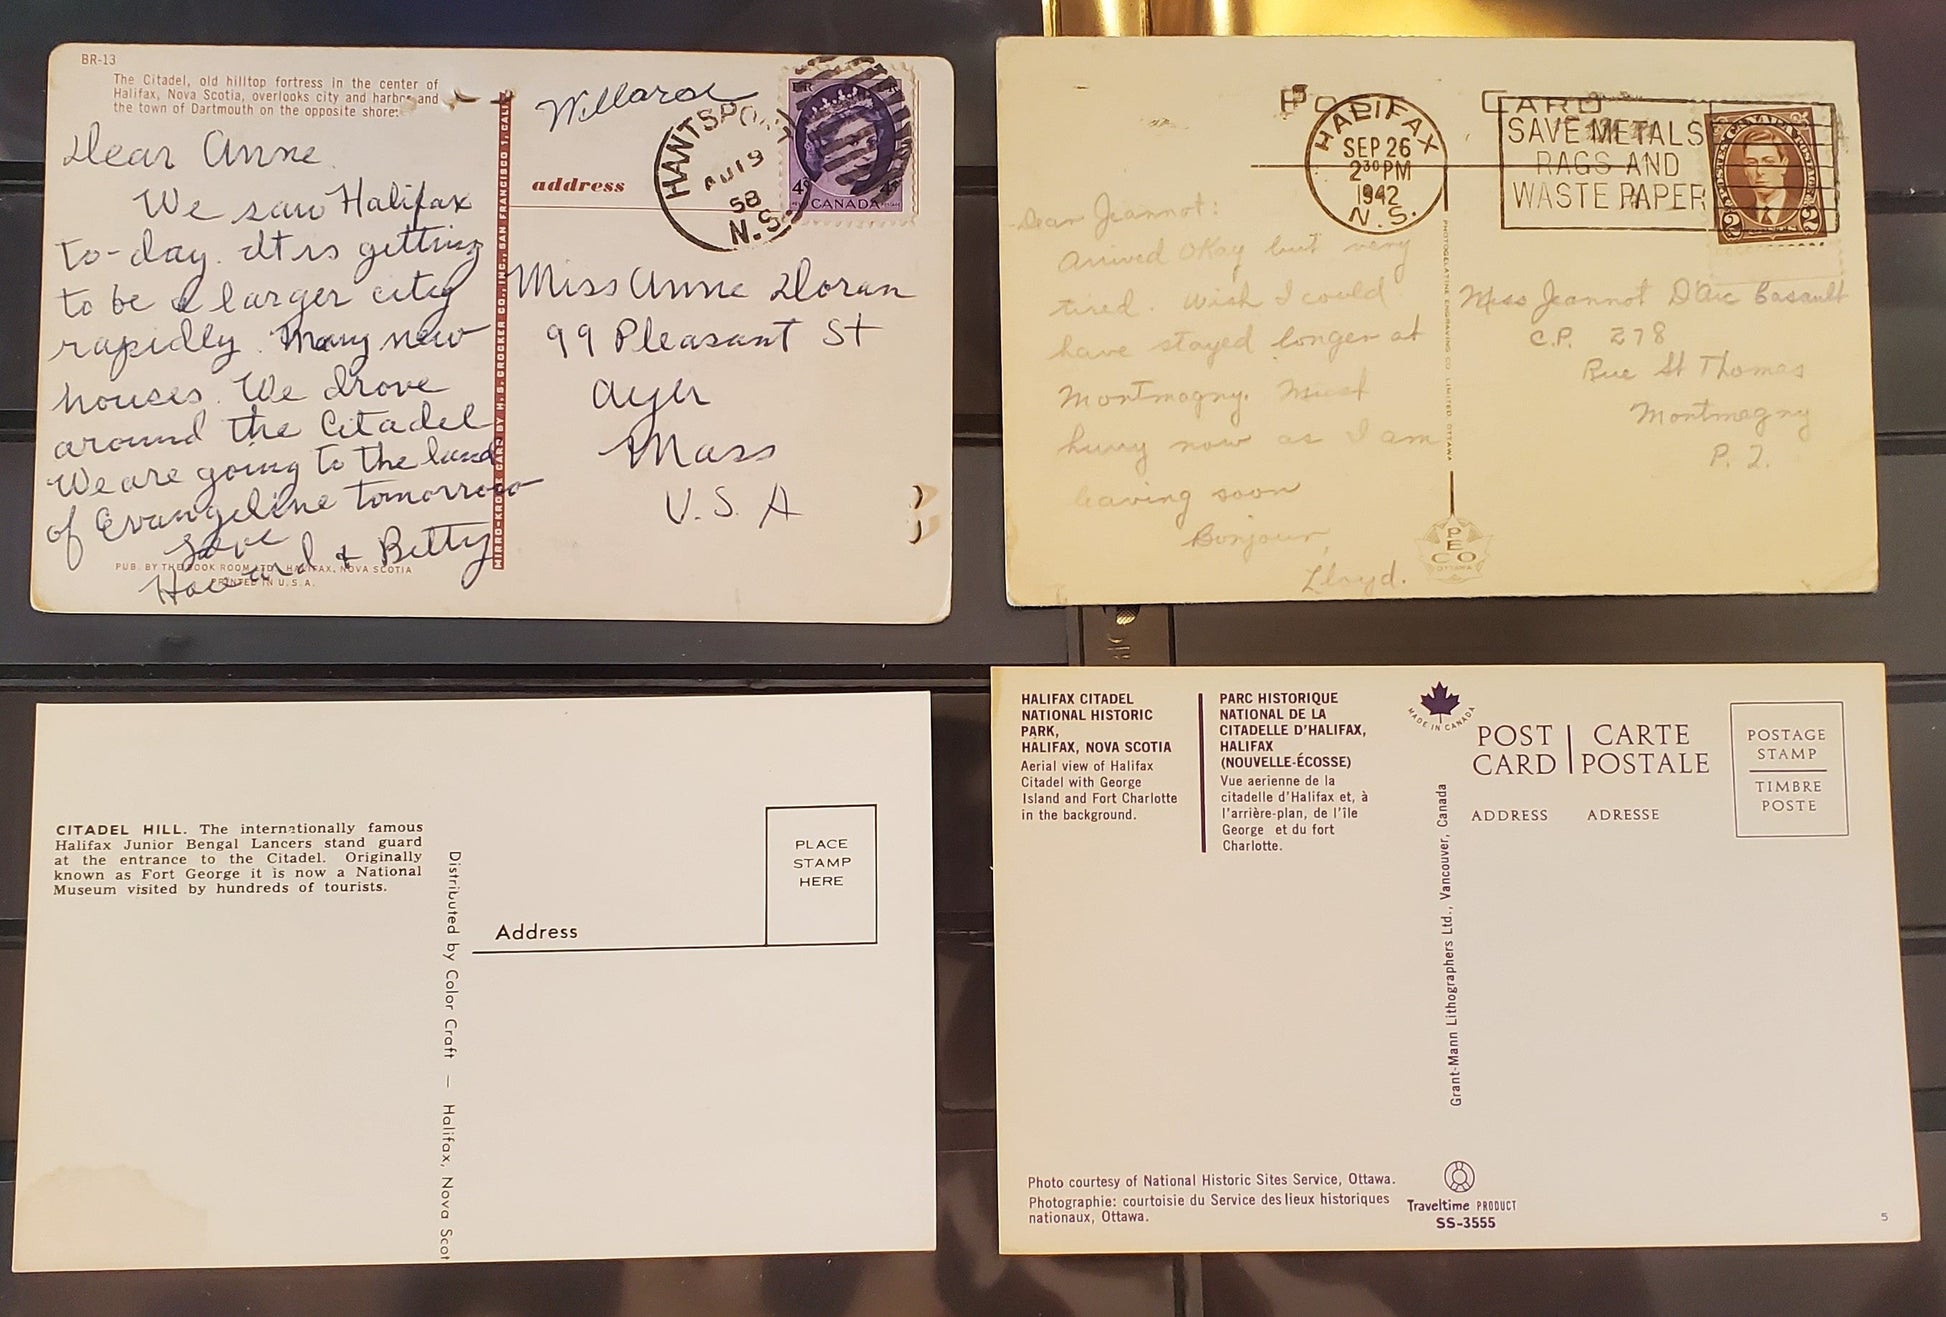 BR-13
The Citadel, old hilltop fortress in the center of
Halifax, Nova Scotia, overlooks city and harbor and
the town of Dartmouth on the opposite shore.
Dear Anne.
We saw Halifax
to-day. It is getting
to be a larger city
rapidly. Many new
houses. We drove
around the Citadel
We are going to the land
of Evangeline tomorrow
Love
Howard & Betty
PUB. BY THE BOOK ROOM LTD., HALIFAX, NOVA SCOTIA
PRINTED IN U.S.A.
MIRRO-KROME CARD BY H. S. CROCKER CO., INC., SAN FRANCISCO 1, CALIF.
HANTSPORT
AU 19
58
N.S.
4¢ 4¢
CANADA
address
Miss Anne Doran
99 Pleasant St
Ayer
Mass
U.S.A
POST CARD
HALIFAX
SEP 26
2 30 PM
1942
N.S.
SAVE METALS
RAGS AND
WASTE PAPER
2 2
Dear Jeannot:
Arrived Okay but very
tired. Wish I could
have stayed longer at
Montmagny. Must
hurry now as I am
leaving soon
Bonjour,
Lloyd.
PHOTOGELATINE ENGRAVING CO. LIMITED, OTTAWA
PECO
OTTAWA
Miss Jeannot D'Arc Casault
C.P. 278
Rue St Thomas
Montmagny
P. Q.
CITADEL HILL. The internationally famous
Halifax Junior Bengal Lancers stand guard
at the entrance to the Citadel. Originally
known as Fort George it is now a National
Museum visited by hundreds of tourists.
Distributed by Color Craft — Halifax, Nova Scot
Address
PLACE
STAMP
HERE
HALIFAX CITADEL
NATIONAL HISTORIC
PARK,
HALIFAX, NOVA SCOTIA
Aerial view of Halifax
Citadel with George
Island and Fort Charlotte
in the background.
PARC HISTORIQUE
NATIONAL DE LA
CITADELLE D'HALIFAX,
HALIFAX
(NOUVELLE-ÉCOSSE)
Vue aerienne de la
citadelle d'Halifax et, à
l'arrière-plan, de l'île
George et du fort
Charlotte.
MADE IN CANADA
POST CARD
CARTE POSTALE
ADDRESS ADRESSE
POSTAGE
STAMP
TIMBRE
POSTE
Grant-Mann Lithographers Ltd., Vancouver, Canada
Photo courtesy of National Historic Sites Service, Ottawa.
Photographie: courtoisie du Service des lieux historiques
nationaux, Ottawa.
Traveltime PRODUCT
SS-3555
5